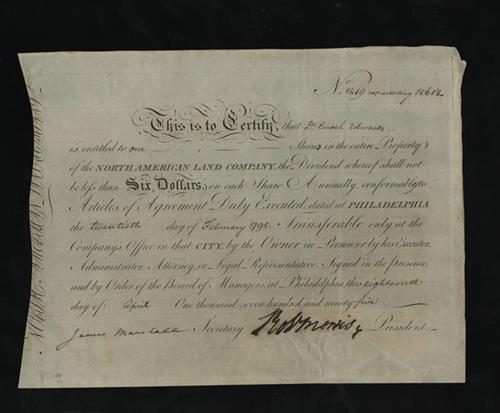 No. 1469 representing 15618
This is to Certify, that Dr. Enoch Edwards
is entitled to one Share in the entire Property
of the NORTH AMERICAN LAND COMPANY, the Dividend whereof shall not
be less than Six Dollars, on each Share Annually, conformably to
Articles of Agreement Duly Executed, dated at PHILADELPHIA
the twentieth day of February 1795. Transferable only at the
Company's Office in that CITY, by the Owner in Person or by his Executor,
Administrator, Attorney, or Legal Representative. Signed in the presence
and by Order of the Board of Managers, at Philadelphia, this eighteenth
day of April One thousand, seven hundred, and ninety five
James Marshall Secretary Robt Morris President